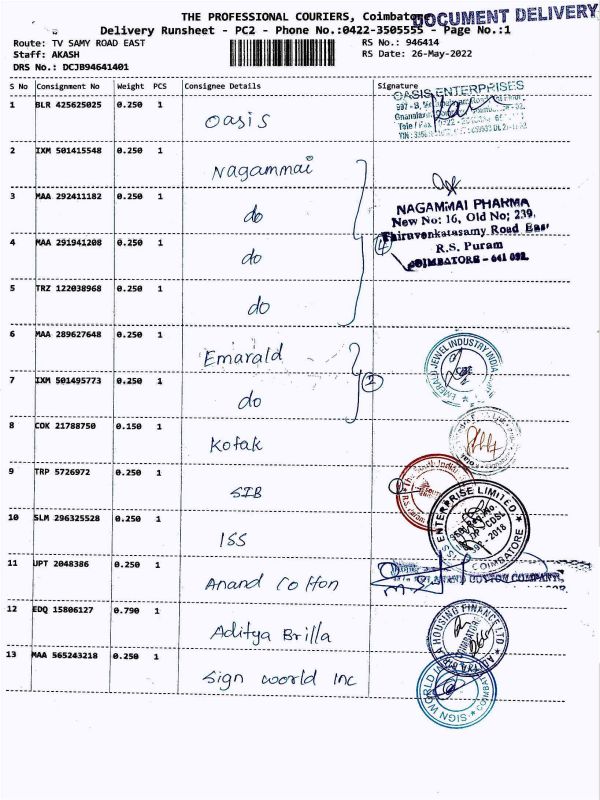 THE PROFESSIONAL COURIERS, Coimbatore
DOCUMENT DELIVERY
Delivery Runsheet - PC2 - Phone No.:0422-3505555 - Page No.:1
Route: TV SAMY ROAD EAST
RS No.: 946414
Staff: AKASH
RS Date: 26-May-2022
DRS No.: DCJB94641401
S No Consignment No Weight PCS Consignee Details Signature
1 BLR 425625025 0.250 1 Oasis
OASIS ENTERPRISES
2 IXM 501415548 0.250 1 Nagammai
3 MAA 292411182 0.250 1 do
NAGAMMAI PHARMA
New No: 16, Old No; 239,
Thiruvenkatasamy Road East
R.S. Puram
COIMBATORE - 641 002.
4 MAA 291941208 0.250 1 do
4
5 TRZ 122038968 0.250 1 do
6 MAA 289627648 0.250 1 Emarald
EMERALD JEWEL INDUSTRY INDIA
7 IXM 501495773 0.250 1 do
2
8 COK 21788750 0.150 1 Kotak
9 TRP 5726972 0.250 1 SIB
10 SLM 296325528 0.250 1 ISS
ENTERPRISE LIMITED
COIMBATORE
11 UPT 2048386 0.250 1 Anand Cotton
COTTON COMPANY,
12 EDQ 15806127 0.790 1 Aditya Brilla
HOUSING FINANCE LTD
13 MAA 565243218 0.250 1 Sign world Inc
SIGN WORLD INC
COIMBATORE